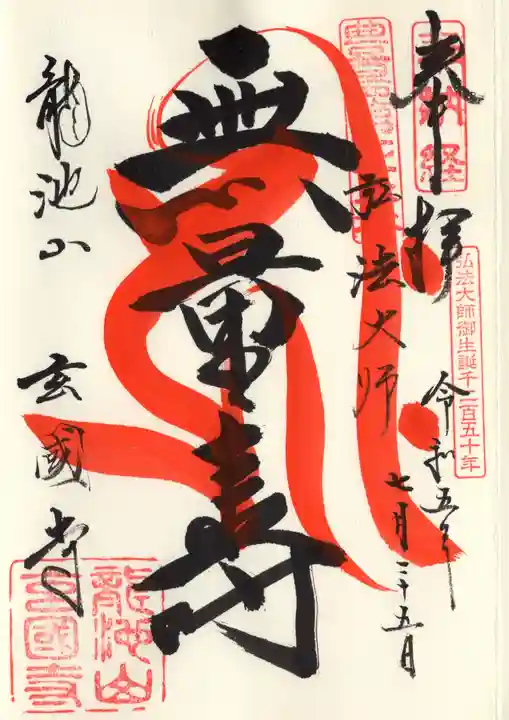 奉拝
奉納経
弘法大師御生誕千二百五十年
令和五年
七月二十五日
弘法大師
無量寿
龍池山
玄國寺
龍池山
玄國寺